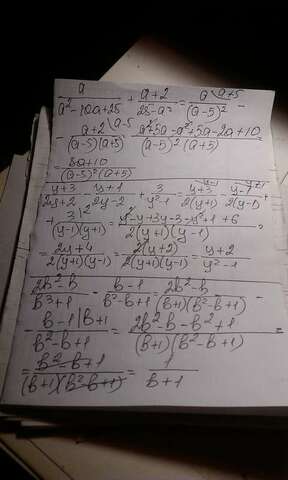 a/(a²-10a+25) + (a+2)/(25-a²) = a\a+5/(a-5)² -
- (a+2\a-5)/((a-5)(a+5)) = (a²+5a-a²+5a-2a+10)/((a-5)²(a+5)) =
= (8a+10)/((a-5)²(a+5))
(y+3)/(2y+2) - (y+1)/(2y-2) + 3/(y²-1) = (y+3)/(2(y+1)) - (y+1)/(2(y-1)) +
+ 3\2/((y-1)(y+1)) = (y²-y+3y-3-y²+1+6)/(2(y+1)(y-1)) =
= (2y+4)/(2(y+1)(y-1)) = 2(y+2)/(2(y+1)(y-1)) = (y+2)/(y²-1)
(2b²-b)/(b³+1) - (b-1)/(b²-b+1) = (2b²-b)/((b+1)(b²-b+1)) -
- (b-1\b+1)/(b²-b+1) = (2b²-b-b²+1)/((b+1)(b²-b+1)) =
= (b²-b+1)/((b+1)(b²-b+1)) = 1/(b+1)